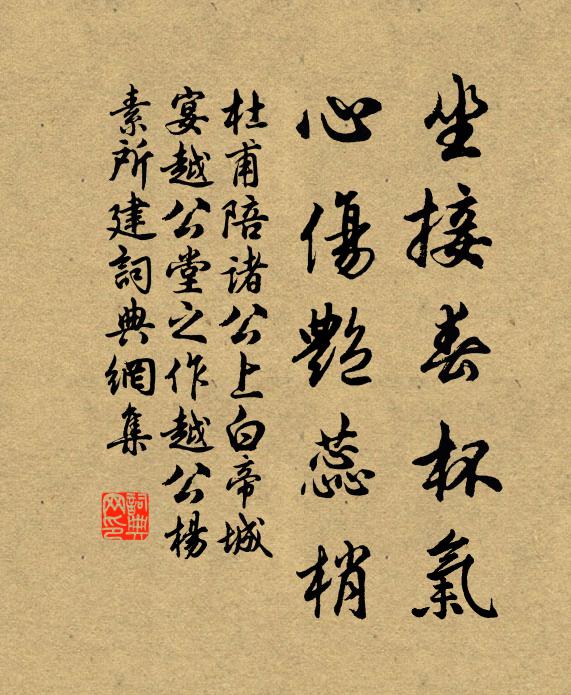 坐接春杯氣
心傷艷蕊梢
杜甫陪諸公上白帝城
宴越公堂之作越公楊
素所建詞典網集
詞典网印